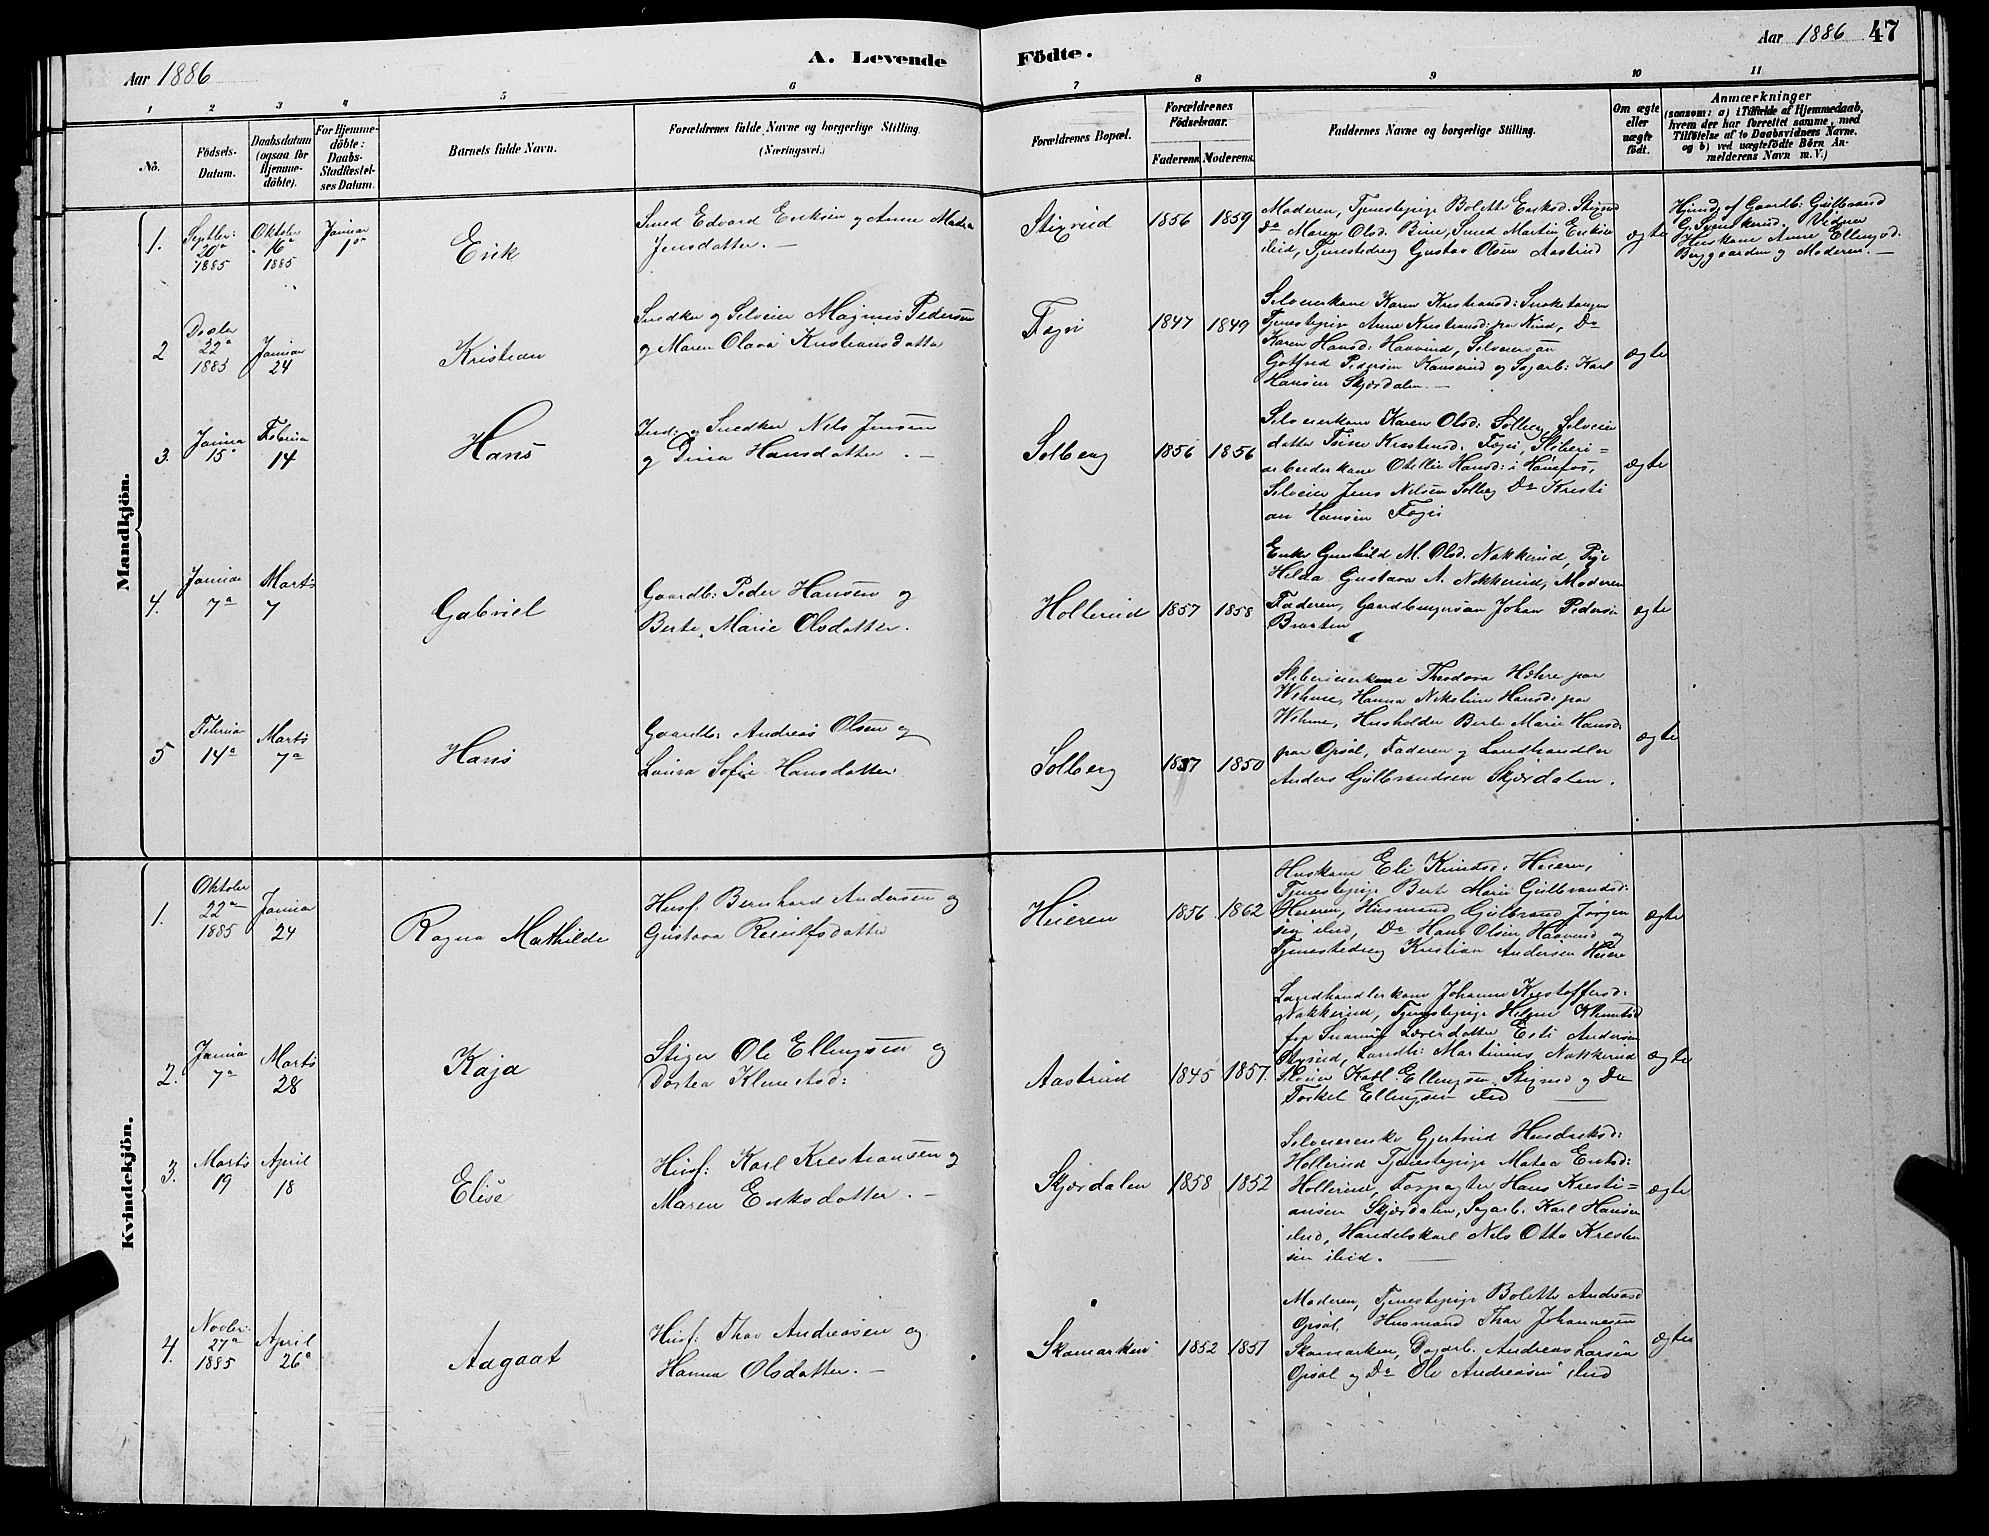 Aar 1886
A. Levende
Födte.
Aar 1886
47
1
2
3
4
5
6
7
8
9
10
11
No.
Födsels-
Datum.
Daabsdatum
(ogsaa for
Hjemme-
döbte).
For Hjemme-
döbte:
Daabs-
Stadfæstel-
ses Datum.
Barnets fulde Navn.
Forældrenes fulde Navne og borgerlige Stilling.
(Næringsvei.)
Forældrenes Bopæl.
Forældrenes
Födselsaar.
Faderens
Moderens.
Faddernes Navne og borgerlige Stilling.
Om ægte
eller
uægte
födt.
Anmærkninger
(saasom: a) i Tilfælde af Hjemmedaab,
hvem der har forrettet samme, med
Tilföielse af to Daabsvidners Navne.
og b) ved uægtefödte Börn An-
melderens Navn m. V.)
Mandkjön.
1.
Septbr:
1885
Oktober
16a
1885
Januar
1a
Erik
Smed Edvard Eriksen og Anne
Jensdatter. —
Stixrud
1856
1859
Moderen, Tjenestepige Bolette Eriksd. Stixrud
Do Maren Olsd. Smed Martin Eriksen
ibid, Tjenestedreng Gustav Olsen Aastrud
ægte
Hjmd: af Gaardb: Gulbrand
G. Svenskerud. Vidner
Huskone Anne Ellingsd.
Berggaarden og Moderen. —
2
Decbr
22a
1885
Januar
24
Kristian
Snedker og Selveier Magnus Pedersen
og Maren Olava Kristiansdatter
Fagri
1847
1849
Selveierkone Karen Kristiansd:
Tjenestepige Anne Kristiansd: paa Do
Karen Hansd: Haavind, Selveiersøn
Gotfred Pedersen og Sagarb: Karl
Hansen Skjærdalen. —
ægte
3.
Januar
15a
Februar
14
Hans
Ind: og Snedker Nils Jensen
og Dina Hansdatter. —
Solberg
1856
1856
Selveierkone Karen Olsd: Solberg, Selveier
datter Kristensd. Sliberi=
arbeiderkone Otellie Hansd: i Hønefos,
Selveier Jens Nilsen Solberg Do Kristi
an Hansen
ægte
4.
Januar
7a
Marts
7
Gabriel
Gaardb: Peder Hansen og
Berte Marie Olsdatter.
Hollerud
1857
1858
Enke Gunhild M. Olsd. Nakkerud, Pige
Hilda Gustava A. Nakkerud, Moderen
Faderen, Gaardbrugersøn Johan Pedersen
Braaten
ægte
5
Februar
14a
Marts
7a
Hans
Gaardb: Andreas Olsen og
Laura Sofie Hansdatter.
Solberg
1857
1850
Theodora paa
Hanna Hansd: paa
Husholder Berte Marie Hansd:
paa Opsal, Faderen og Landhandler
Anders Gulbrandsen Skjærdalen.
ægte
Kvindekjön.
1.
Oktober
22a
1885
Januar
24
Ragna Mathilde
Husf: Bernhard Andersen og
Gustava
Heieren
1856
1862
Huskone Eli Knudsd: Heieren,
Tjenestepige Berte Marie Gulbrandsd:
Heieren, Husmand Gulbrand Jørgen
sen ibid, Do Hans Olsen Haavind og
Tjenestedreng Kristian Andersen Heiere
ægte
2.
Januar
7a
Marts
28
Kaja
Stiger Ole Ellingsen og
Dortea
Aastrud
1845
1857.
Landhandlerkone Johanne Kristoffersd:
Nakkerud, Tjenestepige Helene
datter Andersen
Stixrud, Landh: Martinius Nakkerud
Karl Ellingsen Stixrud og Do
Torkel Ellingsen ibid
ægte
3.
Marts
19
April
18
Elise
Husf: Karl Kristiansen og
Maren Eriksdatter. —
Skjærdalen
1858
1852
Selveierenke Gjertrud Hendriksd:
Hollerud Tjenestepige Eriksd:
Hollerud, Forpagter Hans Kristi=
ansen Skjærdalen, Sagarb. Karl Hansen
ibid, Handelskarl Nils Otto Kristen
sen ibid. —
ægte
4.
Novbr:
27a
1885
April
26a
Aagaat
Husf: Thor Andreasen og
Hanna Olsdatter. —
Skamarken
1852
1851
Moderen, Tjenestepige Bolette Andreasd
Opsal, Husmand Thor Johannesen
Skamarken, Dagarb. Andreas Larsen
Opsal og Do Ole Andreasen ibid
ægte